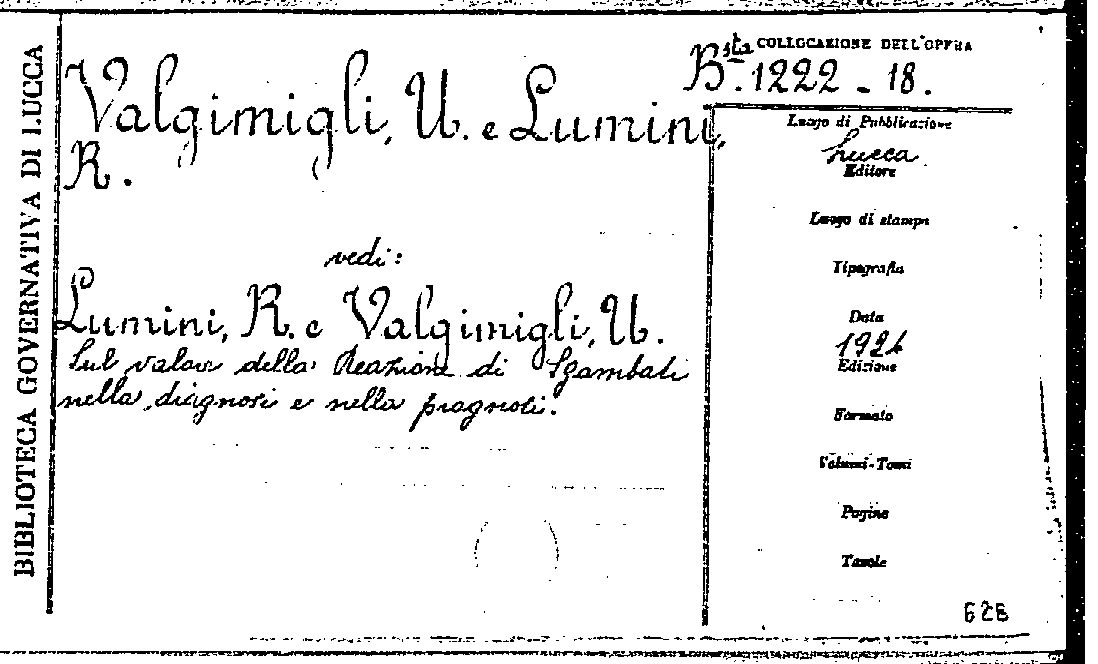 BIBLIOTECA GOVERNATIVA DI LUCCA
COLLOCAZIONE DELL'OPERA
Bsta. 1222 - 18.
Valgimigli, U. e Lumini,
R.
vedi:
Lumini, R. e Valgimigli, U.
Sul valore della Reazione di Sgambati
nella diagnosi e nella prognosi.
Luogo di Pubblicazione
Lucca
Editore
Luogo di stampa
Tipografia
Data
1924
Edizione
Formato
Volumi-Tomi
Pagine
Tavole
628